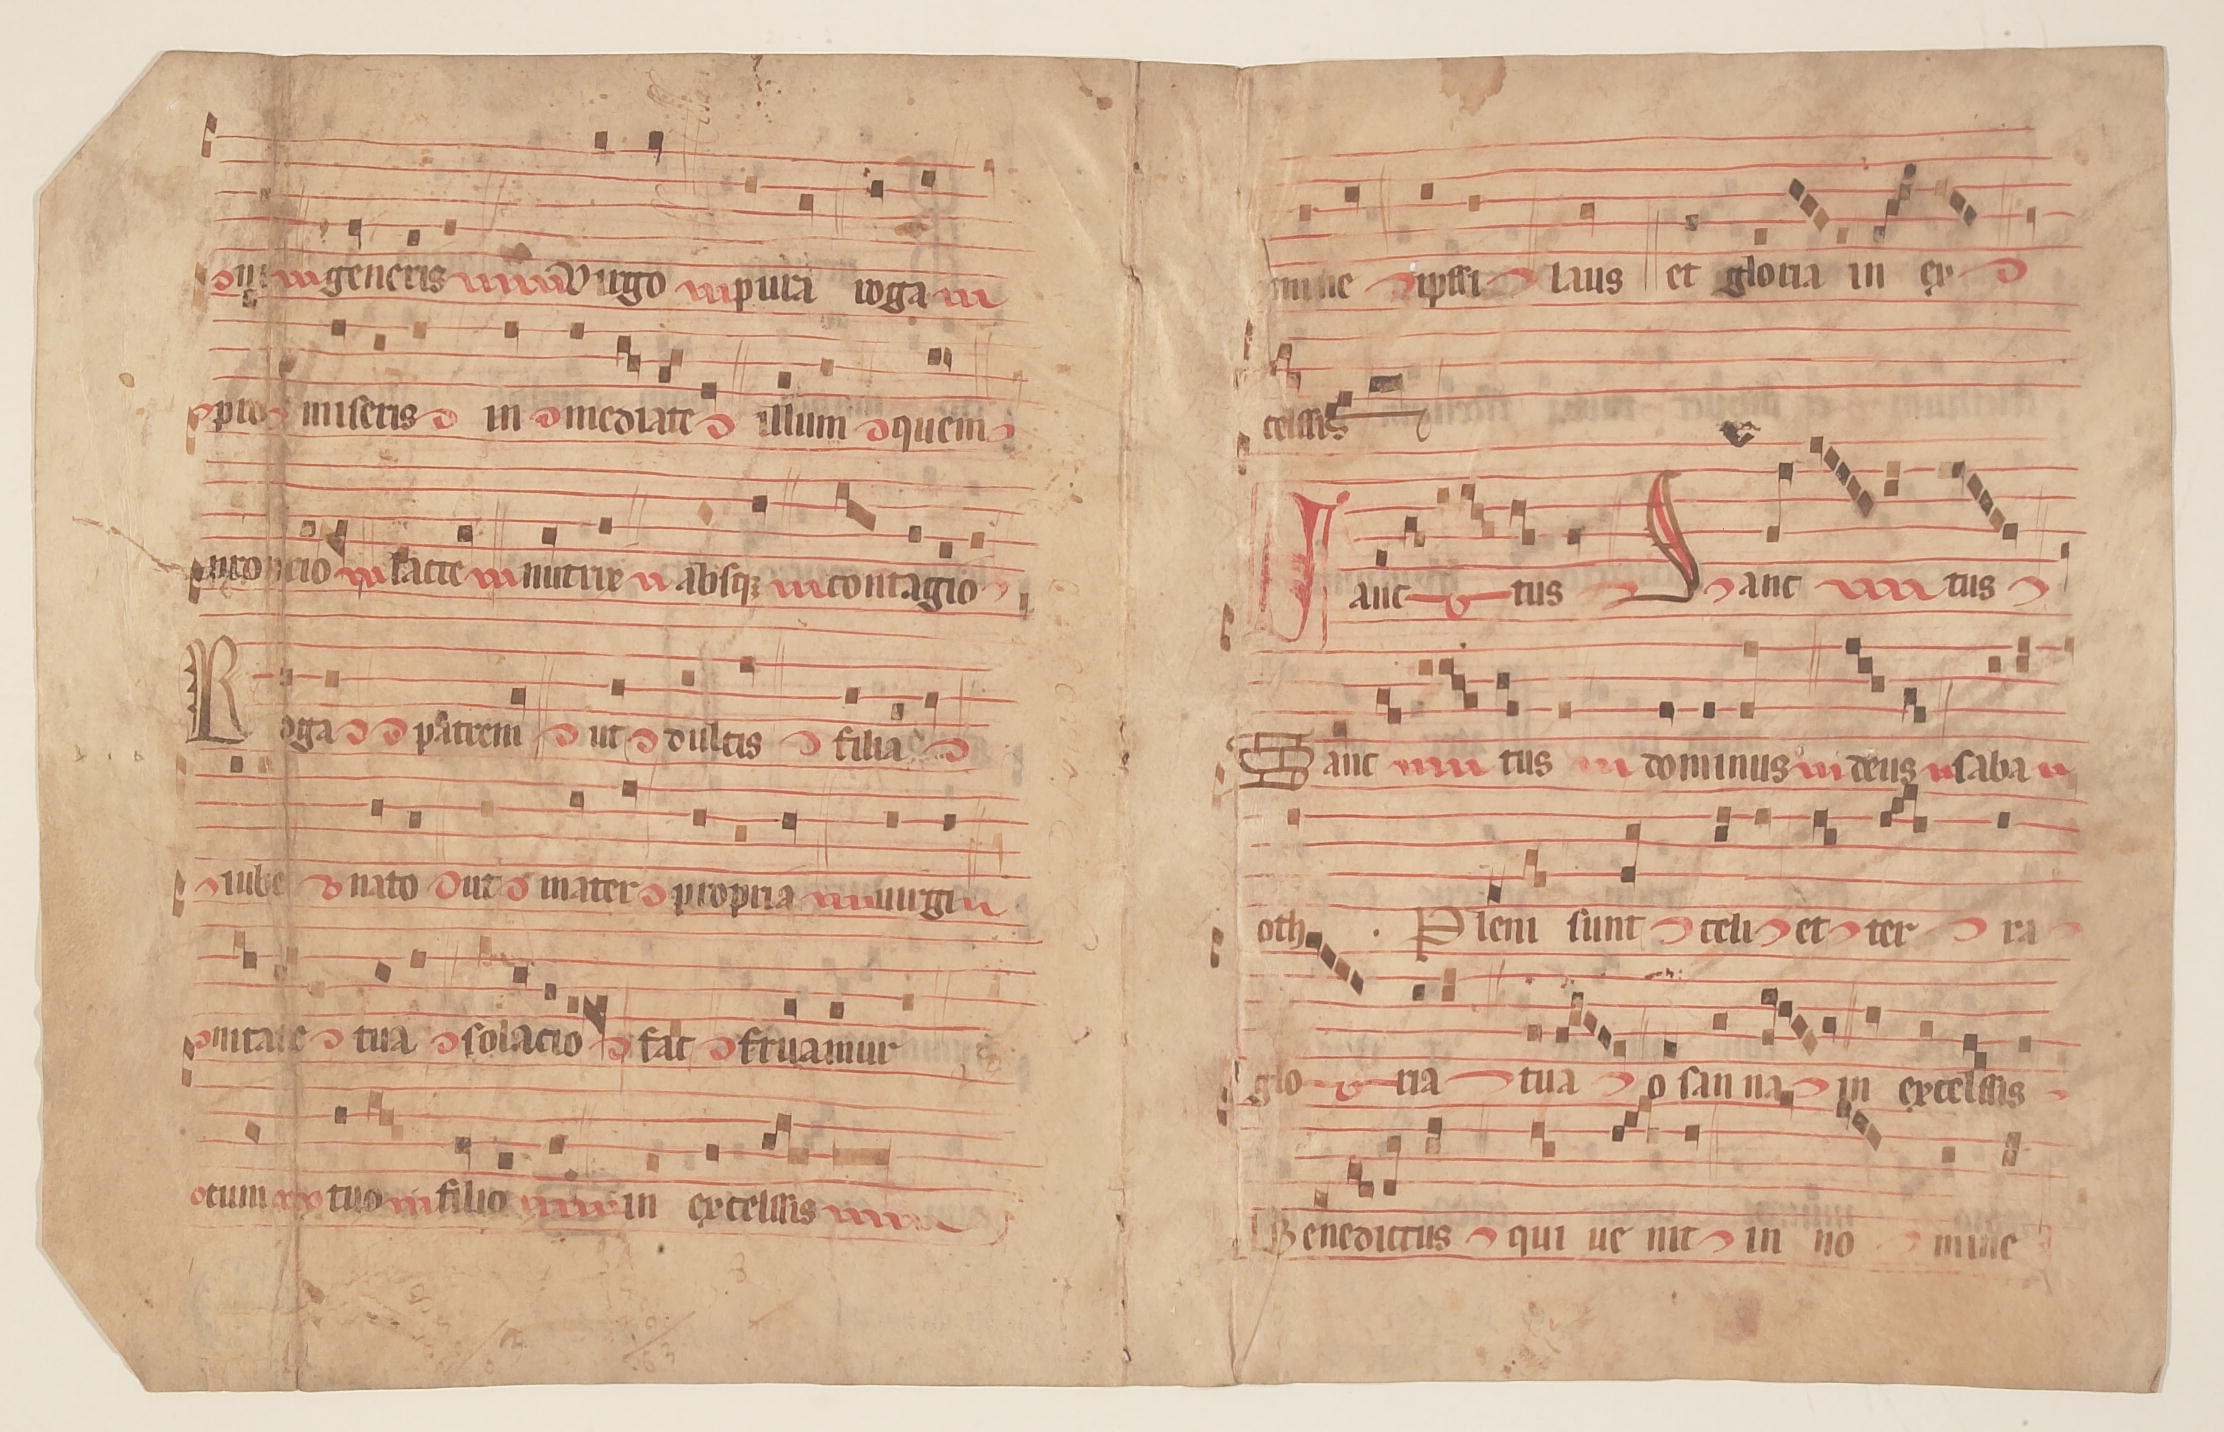 generis Virgo pura roga
pro miseris in mediate illum quem
lacte nutrix absq; contagio
Roga patrem ut dulcis filia
iube nato ut mater propria uirgi
nitate tua solacio fac fruamur
tuo filio in excelssis
mine ipssi laus et gloria in ex
celssis
Sanc tus Sanc tus
Sanc tus dominus deus saba
oth Pleni sunt celi et ter ra
glo ria tua o san na in excelssis
Benedictus qui ue nit in no mine